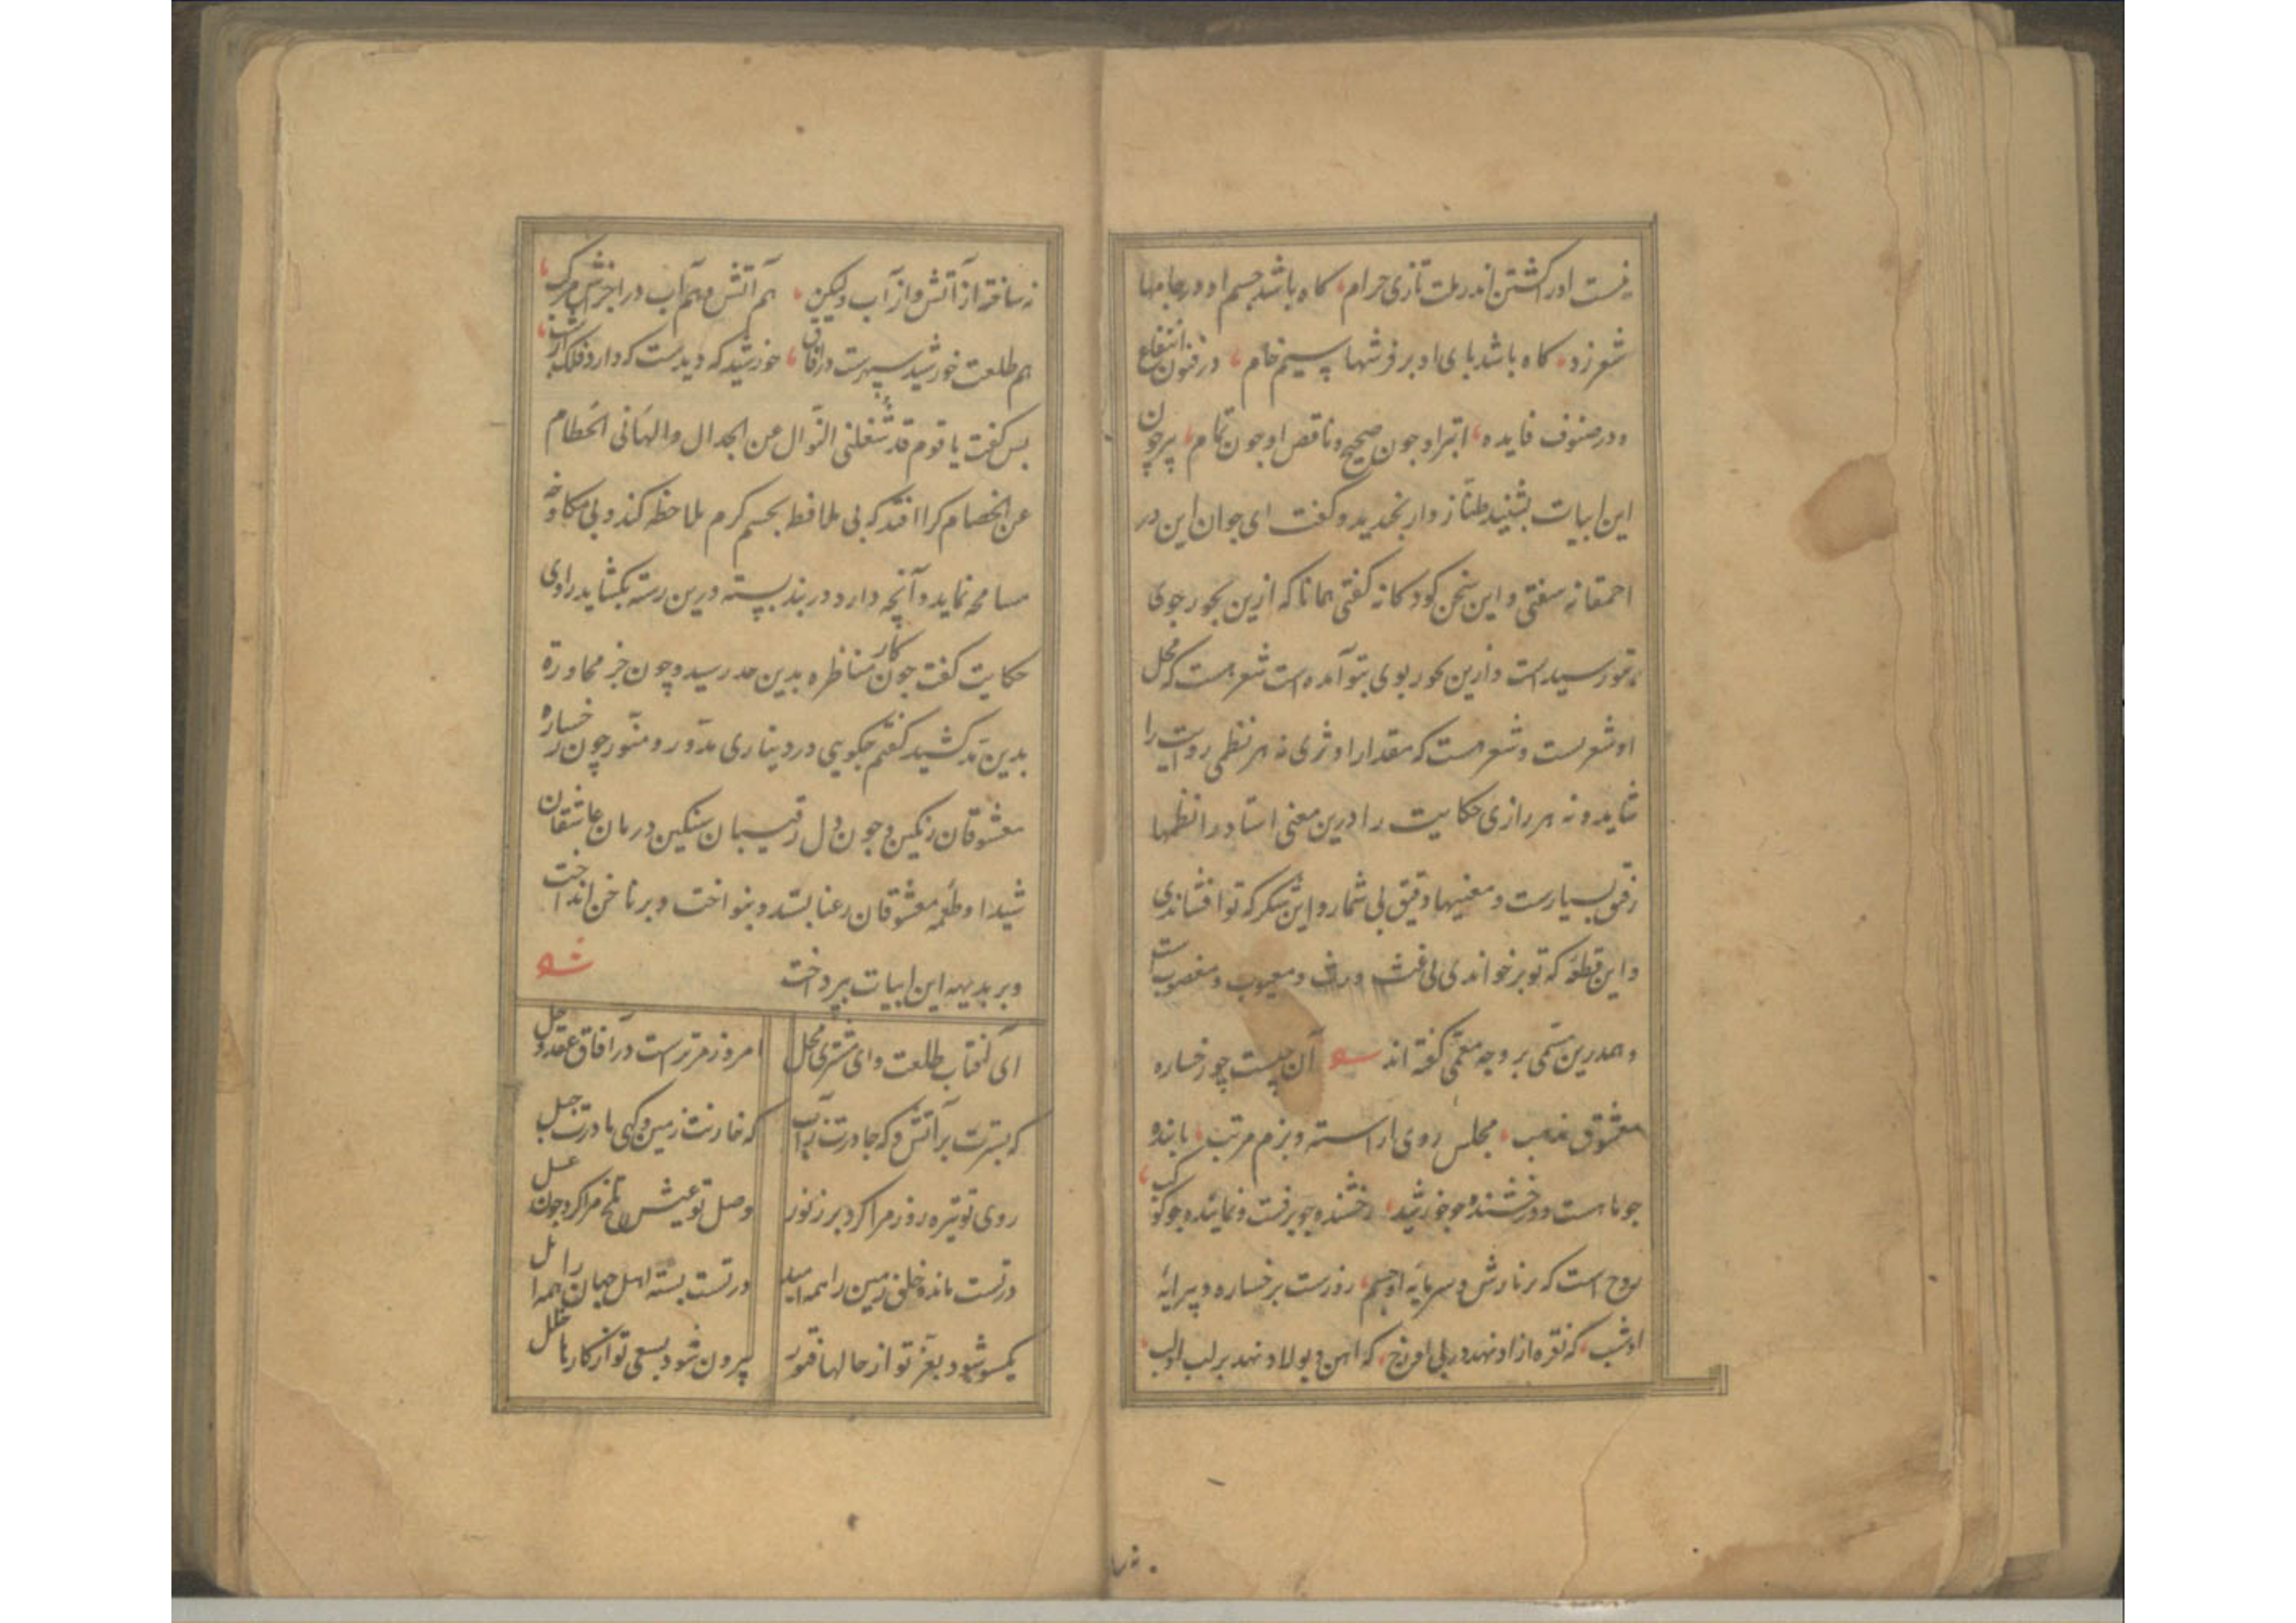 نیست اورا کشتن اندر ملت تازی حرام، کاه باشد جسم او در جامها
شعر زد، کاه باشد بای او بر فرشها سیم خام، در فنون انتفاع
و در صنوف فایده، ابتر او جون صحیح و ناقص او جون تمام، پیر چون
این ابیات بشنید طناز وار بخندید و کفت ای جوان این در
احمقانه سفتی و این سخن کودکانه کفتی همانا که ازین بحور جوی
بتو رسیده است و ازین بخور بوی بتو آمده است شعر هست که محل
او شعریست و شعر هست که مقدار او ثری نه هر نظمی روایت را
شاید و نه هر رازی حکایت را درین معنی استاد را نظمها
رقیق بسیارست و معنیها دقیق بی شمار و این شکر که تو افشاندی
و این قطعه که تو بر خواندی بی غث و رث و معیوب و مغصوبست
و همدرین مسمی بر وجه معمی کفته اند آن چیست چو رخساره
معشوق مذهب، مجلس بوی اراسته و بزم مرتب، تابنده
جو ماهست و درخشنده چو خورشید، رخشنده چو برقست و نماینده چو کوکب
روح است که نارش و سرمایه او جسم، روزست برخساره و پیرایه
او شب، که نقره ازاد نهد در پی او رخ، که اهن و پولاد نهد بر لب او لب
نه ساخته از آتش و از آب ولیکن، هم آتش و هم آب در اجزاش مرکب
هم طلعت خورشید سپهرست در آفاق، خورشید که دیدست که دارد فلک از
بس کفت یا قوم قد شغلنی النوال عن الجدال والهانی الحطام
عن الخصام کرا افتد که بی ملافظ بجسم کرم ملاحظه کند و بی مکاوحه
مسامحه نماید و آنچه دارد در بند بسته درین رسته بکشاید راوی
حکایت کفت جون کار مناظره بدین حد رسید و چون جزر محاورة
بدین مد کشید کفتم جکویی در دیناری مدور و منور چون رخساره
معشوقان رنکین و جون دل رقیبان سنکین درمان عاشقان
شیدا و طعمه معشوقان رعنا بستد و بنواخت و بر ناخن انداخت
و بر بدیهه این ابیات بپرداخت
ای آفتاب طلعت و ای مشتری محل امروز مر تراست در آفاق عقد و حل
که بسترت بر آتش و که جادرت ز آب که خارنت زمین و کهی مادرت جبل
روی تو تیره روز مرا کرد پر ز نور وصل تو عیش تلخ مرا کرد چون عسل
در تست مانده خلق زمین را همه امید در تست بسته اهل جهان را همه امل
یکسو شود بعز تو از حالها فتور بیرون شود بسعی تو از کارها خلل